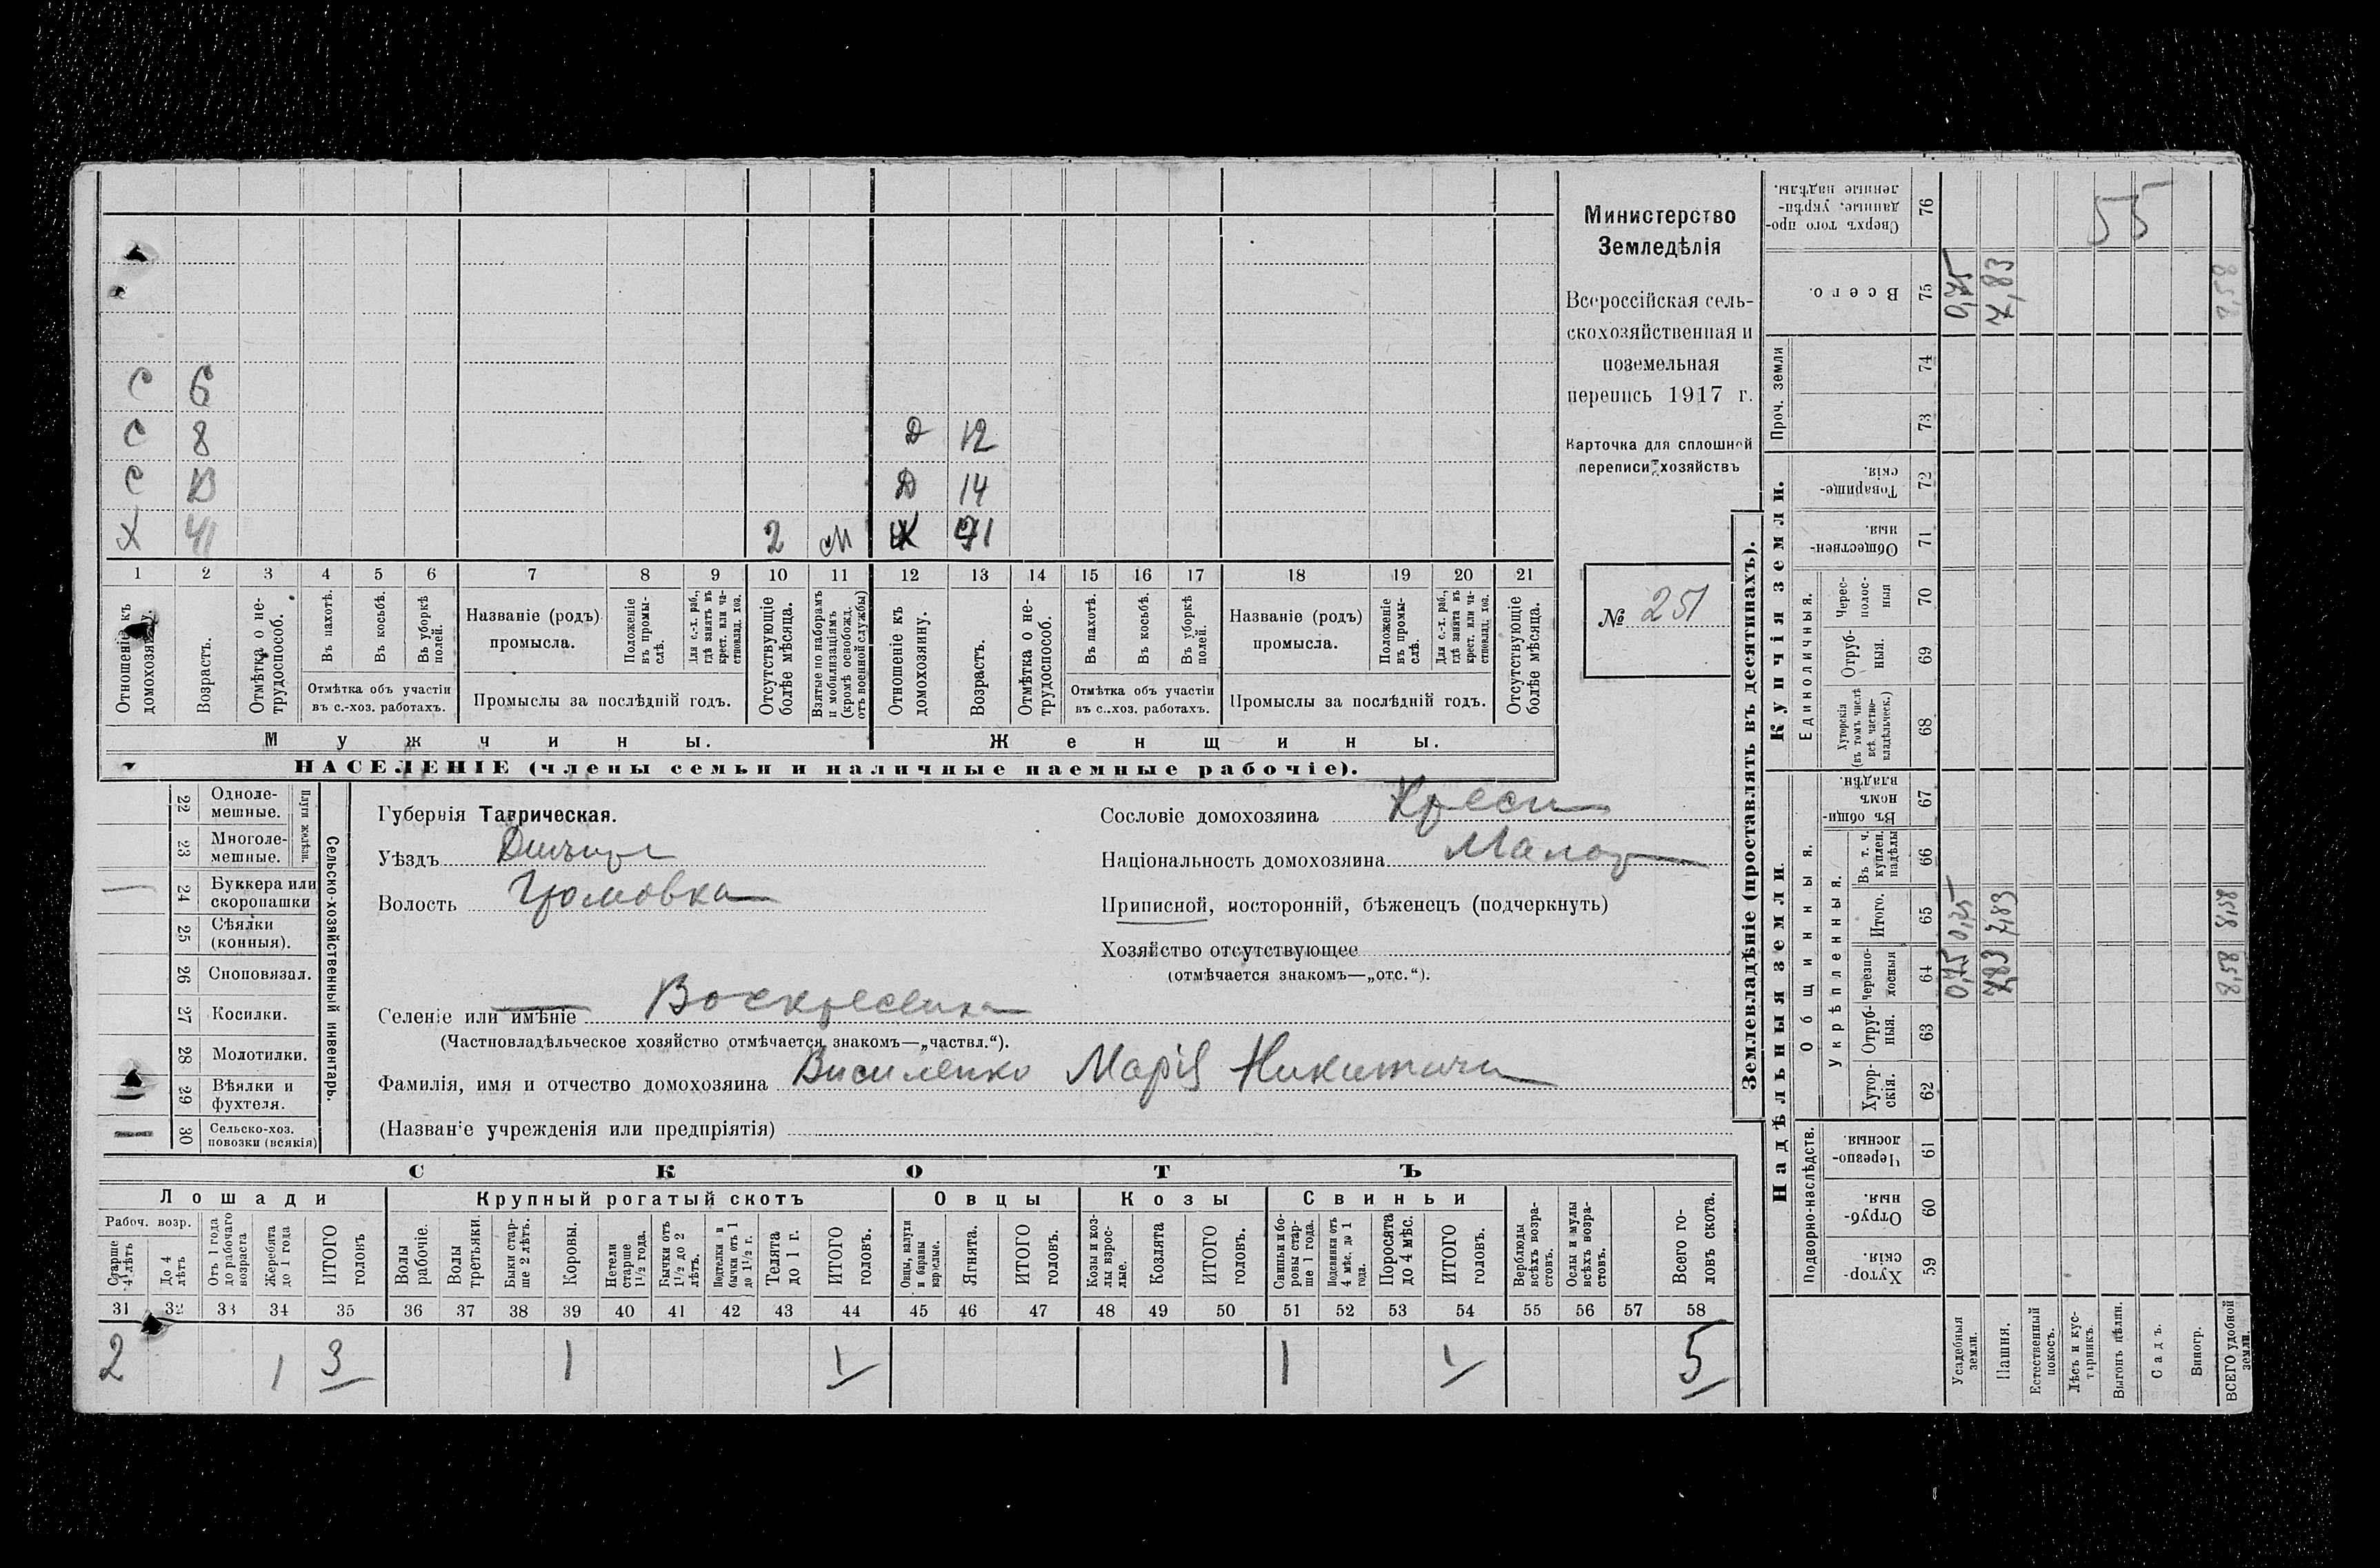 С 6
С 8 Д 12
С 10 Д 14
Х 41 2 м Ж 41
1 2 3 4 5 6 7 8 9 10 11 12 13 14 15 16 17 18 19 20 21
Отношеніе къ домохозяину.
Возрастъ.
Отмѣтка о не-трудоспособ.
Въ пахотѣ.
Въ косьбѣ.
Въ уборкѣ полей.
Отмѣтка объ участіи
въ с.-хоз. работахъ.
Названіе (родъ)
промысла.
Положеніе въ промы-слѣ.
Для с.-х. раб., гдѣ занятъ въ крест. или ча-стновлад. хоз.
Промыслы за послѣдній годъ.
Отсутствующіе болѣе мѣсяца.
Взятые по наборамъ и мобилизаціямъ (кромѣ освобожд. отъ военной службы)
Отношеніе къ домохозяину.
Возрастъ.
Отмѣтка о не-трудоспособ.
Въ пахотѣ.
Въ косьбѣ.
Въ уборкѣ полей.
Отмѣтка объ участіи
въ с..хоз. работахъ.
Названіе (родъ)
промысла.
Положеніе въ промы-слѣ.
Для с.-х. раб., гдѣ занята въ крест. или ча-стновлад. хоз.
Промыслы за послѣдній годъ.
Отсутствующіе болѣе мѣсяца.
Мужчины.
Женщины.
НАСЕЛЕНІЕ (члены семьи и наличные наемные рабочіе).
Министерство
Земледѣлія
Всероссійская сель-
скохозяйственная и
поземельная
перепись 1917 г.
Карточка для сплошной
переписи хозяйствъ
№ 251
22 Однолемешные.
23 Многолемешные.
Плуги желѣзн.
24 Буккера или скоропашки
25 Сѣялки (конныя).
26 Сноповязал.
27 Косилки.
28 Молотилки.
29 Вѣялки и фухтеля.
30 Сельско-хоз. повозки (всякія)
Сельско-хозяйственный инвентарь.
Губернія Таврическая.
Уѣздъ Днѣпр
Волость Громовка
Селеніе или имѣніе Воскресенка
(Частновладѣльческое хозяйство отмѣчается знакомъ—„частвл.“).
Фамилія, имя и отчество домохозяина Василенко Марія Никитична
(Названіе учрежденія или предпріятія)
Сословіе домохозяина Крест
Національность домохозяина Малор
Приписной, посторонній, бѣженецъ (подчеркнуть)
Хозяйство отсутствующее
(отмѣчается знакомъ—„отс.“).
СКОТЪ
Лошади
Крупный рогатый скотъ
Овцы
Козы
Свиньи
Рабоч. возр.
Старше 4 лѣтъ
До 4 лѣтъ
Отъ 1 года до рабочаго возраста
Жеребята до 1 года
ИТОГО головъ
Волы рабочіе.
Волы третьяки.
Быки стар-ше 2 лѣтъ.
Коровы.
Нетели старше 1½ года.
Бычки отъ 1½ до 2 лѣтъ.
Подтелки и бычки отъ 1 до 1½ г.
Телята до 1 г.
ИТОГО головъ.
Овцы, валухи и бараны взрослые.
Ягнята.
ИТОГО головъ.
Козы и коз-лы взрос-лые.
Козлята
ИТОГО головъ.
Свиньи и бо-ровы стар-ше 1 года.
Подсвинки отъ 4 мѣс. до 1 года.
Поросята до 4 мѣс.
ИТОГО головъ.
Верблюды всѣхъ возра-стовъ.
Ослы и мулы всѣхъ возра-стовъ.
Всего го-ловъ скота.
31 32 33 34 35 36 37 38 39 40 41 42 43 44 45 46 47 48 49 50 51 52 53 54 55 56 57 58
2 1 3 1 1 1 1 5
Землевладѣніе (проставлять въ десятинахъ).
Надѣльныя земли.
Купчія земли.
Подворно-наслѣдств.
Общинныя.
Укрѣпленныя.
Единоличныя.
Проч. земли
Хутор-скія. 59
Отруб-ныя. 60
Черезпо-лосныя. 61
Хутор-скія. 62
Отруб-ныя. 63
Черезпо-лосныя 64
Итого. 65
Въ т. ч. куплен. надѣлы 66
Въ общи-номъ владѣн. 67
Хуторскія (въ томъ числѣ всѣ частно-владѣльческ.) 68
Отруб-ныя. 69
Черес-полос-ныя 70
Обществен-ныя. 71
Товарище-скія. 72
73
74
Всего. 75
Сверхъ того про-данные, укрѣп-ленные надѣлы. 76
Усадебныя земли. 0,75 0,75 0,75
Пашня. 7,83 7,83 7,83
Естественный покосъ.
Лѣсъ и кус-тарникъ.
Выгонъ цѣлин.
Садъ.
Виногр.
ВСЕГО удобной земли. 8,58 8,58 8,58
55